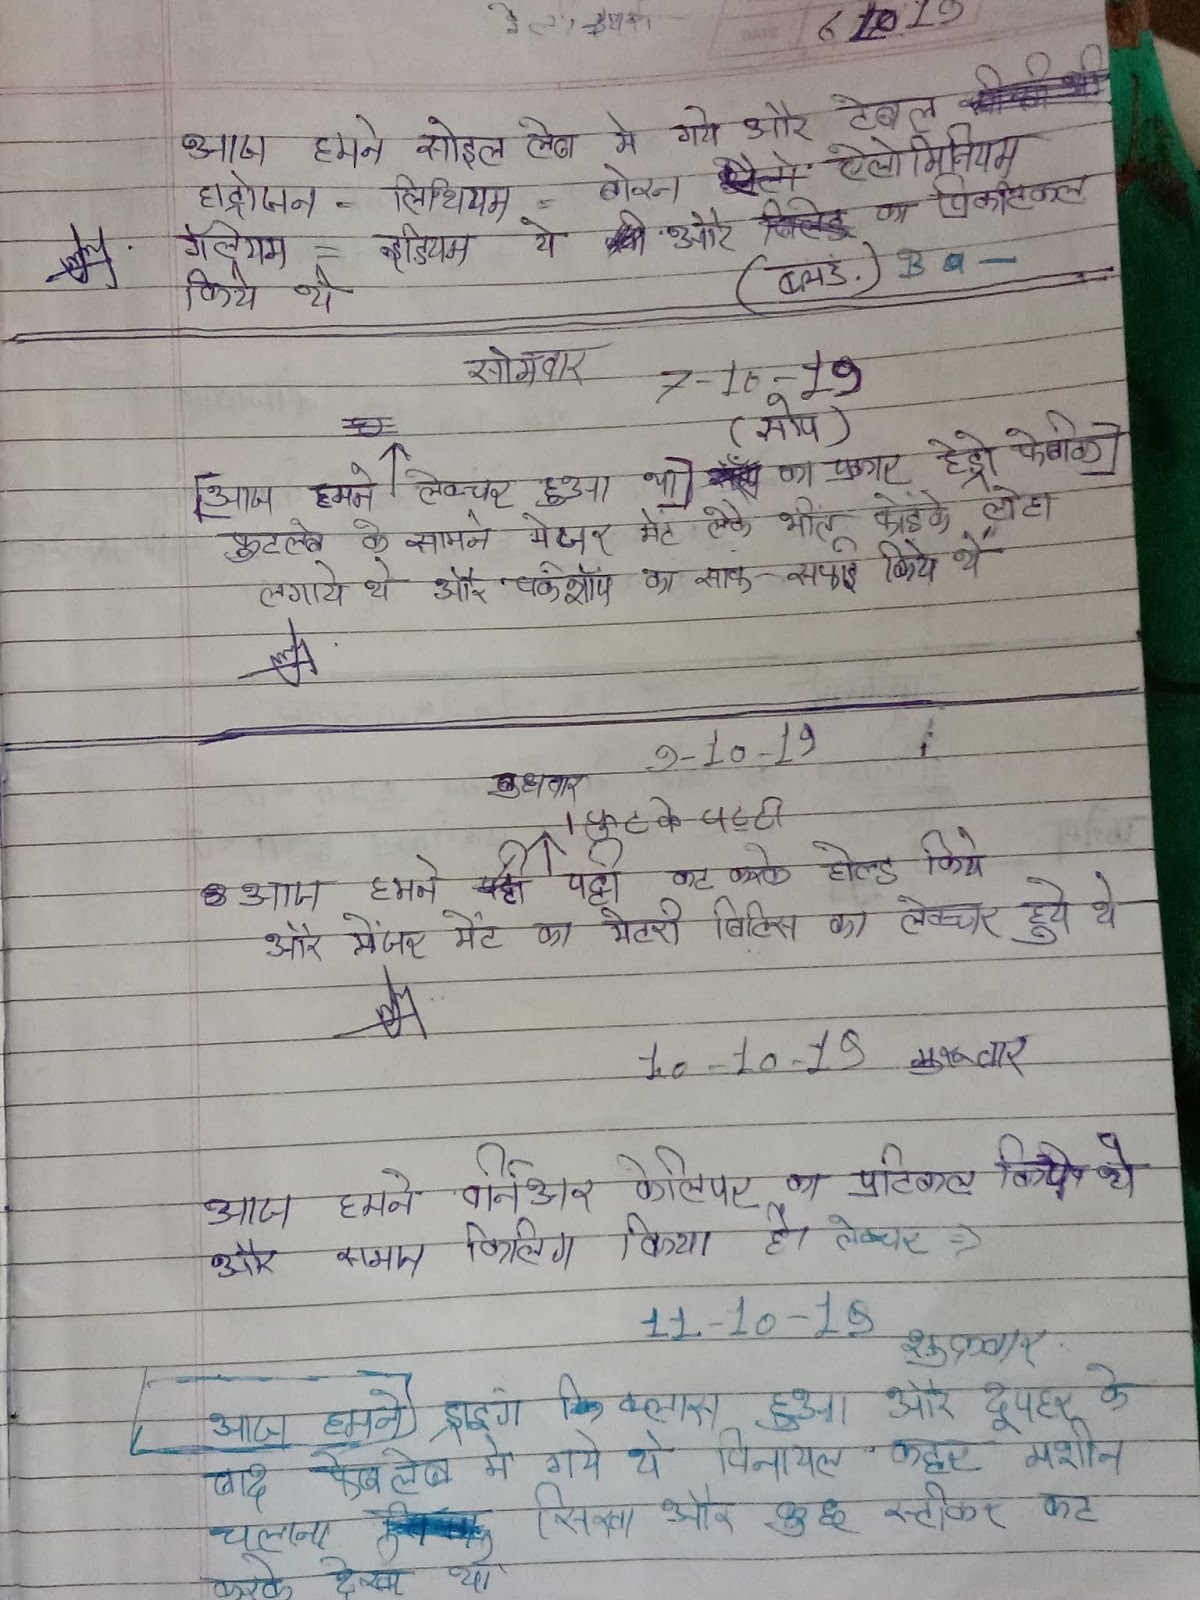 6 10 19
आज हमने सोइल लेब मे गये और टेबल
हाद्रोजन - लिथियम = बोरन ऐलोमिनियम
गॅलियम = इंडियम ये और का प्रिकटिकल
किये थे (ब्लड.) B a -
सोमवार 7-10-19
(सोप)
[आज हमने लेक्चर हुआ था] का प्रकार हेड्रो
फुटलेब के सामने मेजर मेंट लेके लोटा
लगाये थे और वर्कशॉप का साफ-सफाई किये थे
9-10-19
बुधवार
1 फुट के पट्टी
आज हमने पट्टी कट करके होल्ड किये
और मेंजर मेंट का मेटरी बिटिस का लेक्चर हुये थे
10-10-19 गुरूवार
आज हमने वर्निअर केलिपर का प्रटिकल किये थे
और समज किलिग किया है। लेक्चर =>
11-10-19
शुक्रवार
आज हमने ड्राइंग कि क्लास हुआ और दूपहर के
बाद फेबलेब मे गये थे विनायल कट्टर मशीन
चलाना सिखा और कुछ स्टीकर कट
करके देखा था